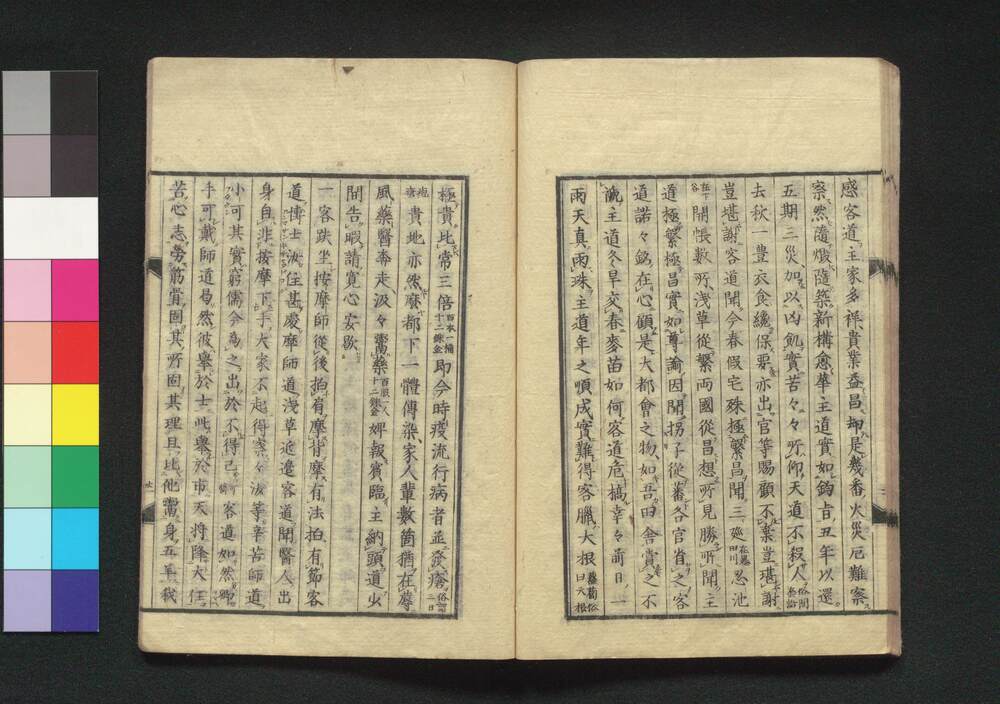 感客道主家多祥貴業益昌抑是幾番火災厄難察
察然隨燬隨築新構愈華主道實如鈞吉丑年以還
五期三災加以凶飢實苦々々所仰天道不殺人
去秋一豊衣食纔保要亦出官等賜顧不棄豈堪謝
豈堪謝客道聞今春假宅殊極繁昌聞三廻忍池
開帳數所淺草從繁兩國從昌想所見勝所聞主
道極繁極昌實如尊諭因聞拐子從蕃各官省之客
道諾々銘在心顧是大都會之物如吾田舍賣之不
主道冬旱交春麥苗如何客道危槁幸々前日一
雨天真雨珠主道年之順成實難得客臘大根 蘿蔔俗曰大根
極貴比常三倍 百本一桶十二銖金 即今時疫流行病者並發瘡
貴地亦然麼都下一體傳染家人輩數箇猶在蓐
風藥醫奔走汲々 婢報賓臨主納頭道少
間告暇請寬心安歇
一客趺坐按摩師從後拍有摩背摩有法拍有節客
道博士汝住甚處摩師道淺草近邊客道聞醫人出
身自非按摩下手大家不起得察々汝等辛苦師道
小可其實窮儒今為之出於不得已 客道如然
手可戴師道曷然彼舉於士此舉於市天將降大任
苦心志勞筋骨固其所固其理且比他鬻身五羊我